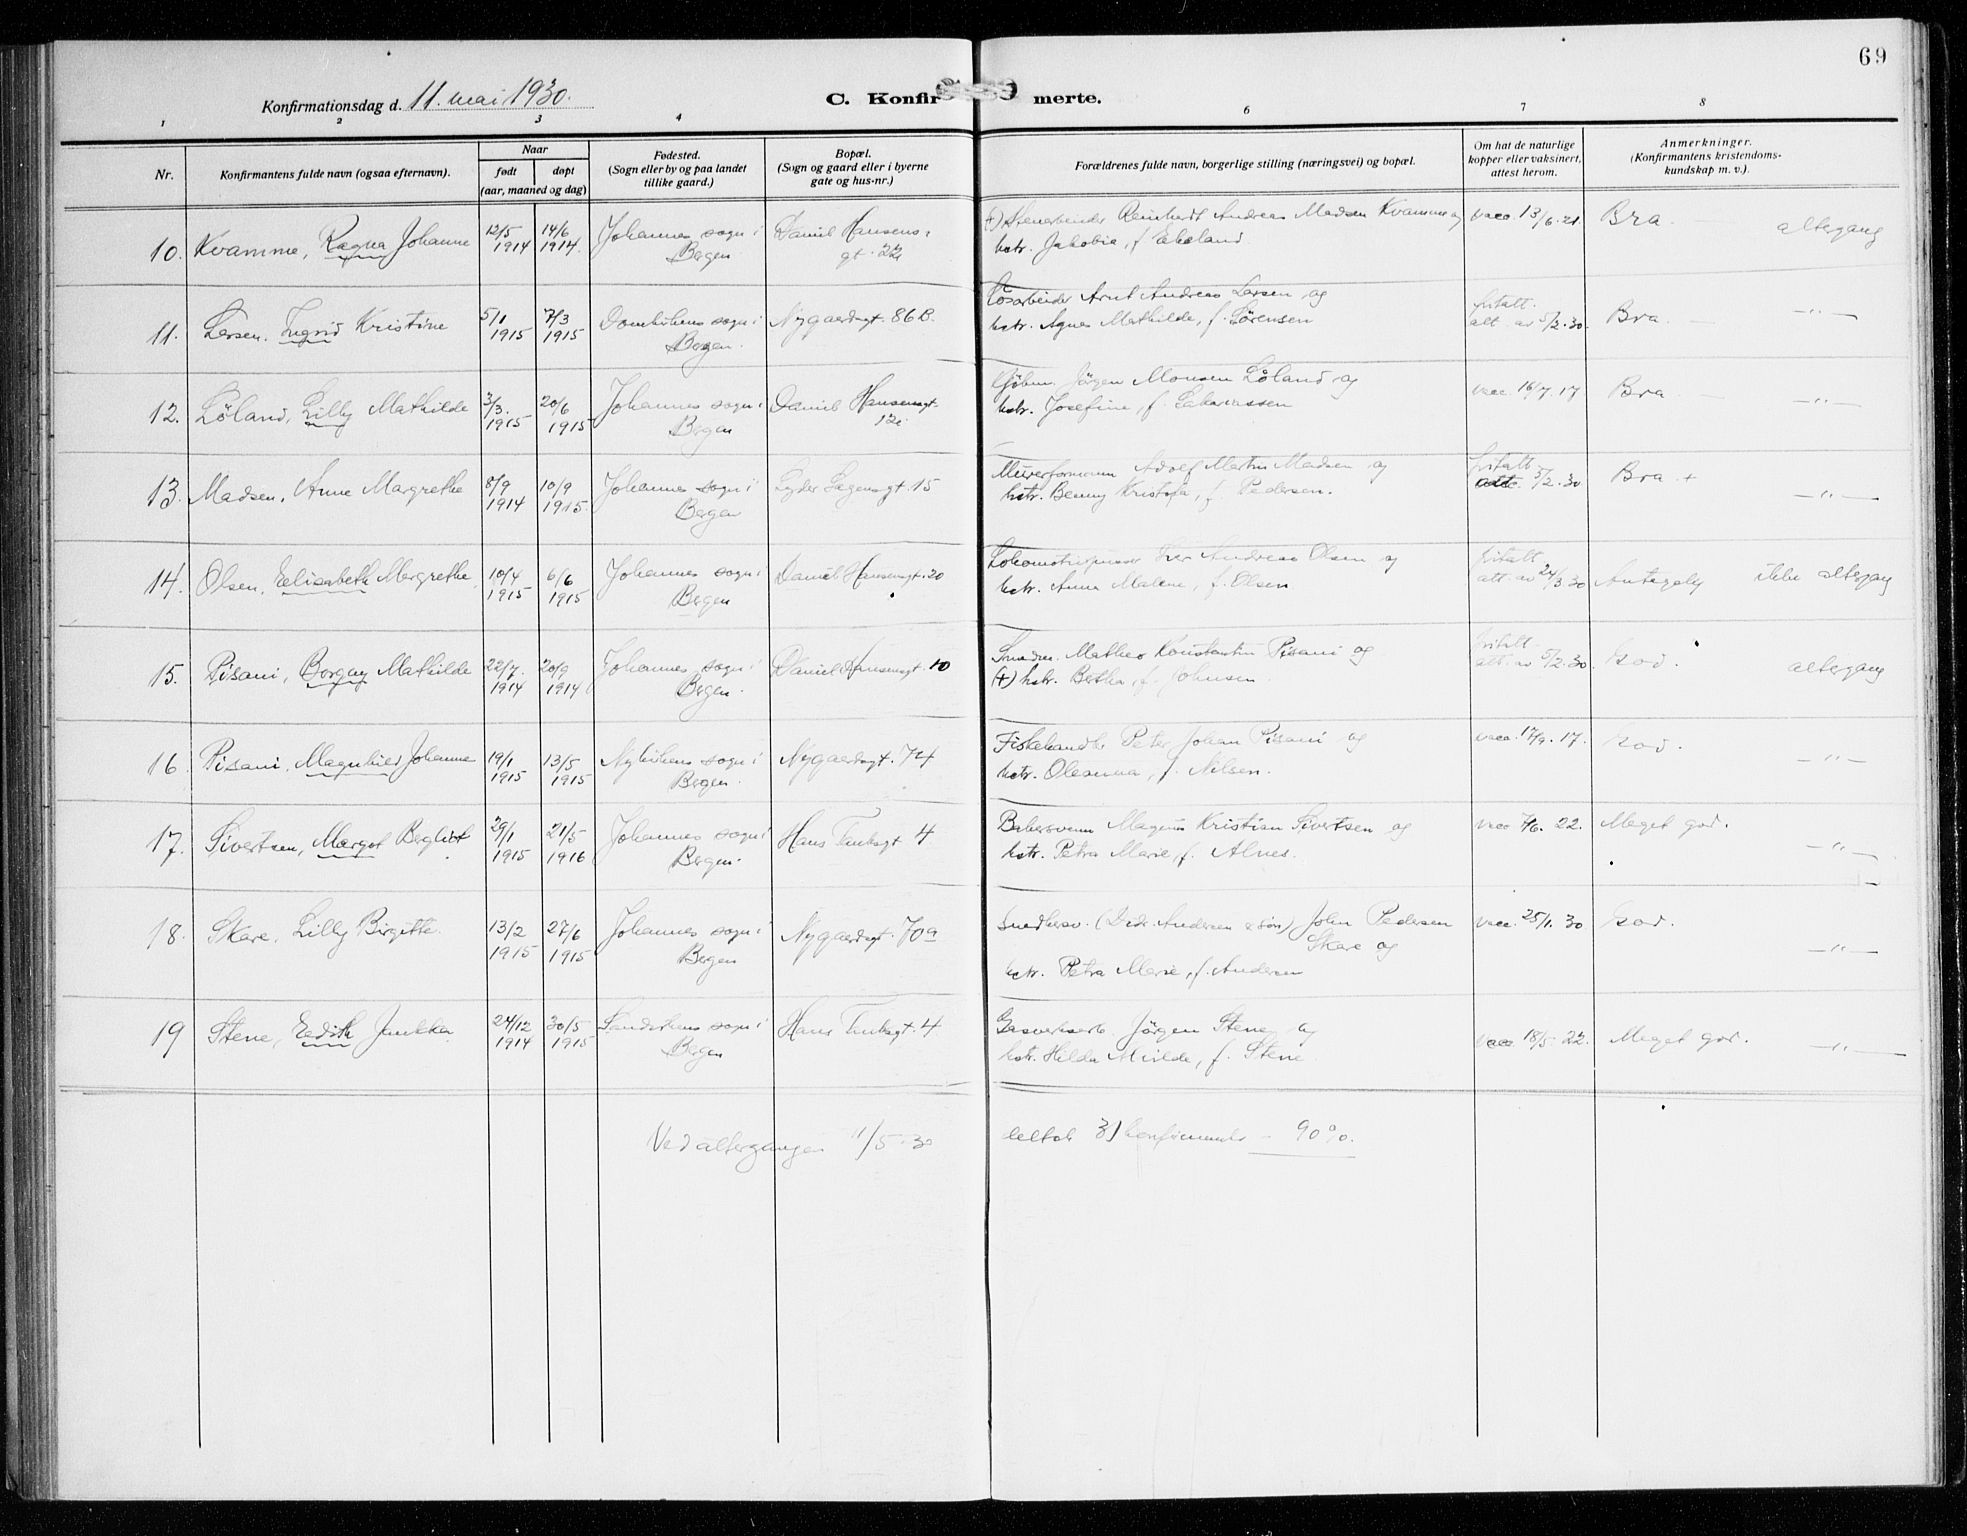 69
Konfirmationsdag d. 11. mai 1930.
C. Konfirmerte.
1 2 3 4 6 7 8
Nr.
Konfirmantens fulde navn (ogsaa efternavn).
Naar
født døpt
(aar, maaned og dag)
Fødested.
(Sogn eller by og paa landet
tillike gaard.)
Bopæl.
(Sogn og gaard eller i byerne
gate og hus-nr.)
Forældrenes fulde navn, borgerlige stilling (næringsvei) og bopæl.
Om hat de naturlige
kopper eller vaksinert,
attest herom.
Anmerkninger.
(Konfirmantens kristendoms-
kundskap m. v.).
10. Kvamme, Ragna Johanne 12/5 1914 14/6 1914. Johannes sogn i Bergen Daniel Hansens gt. 22
(+) Stenarbeider Reinhardt Andreas Madsen Kvamme og
hstr. Jakobia, f. Ekeland.
vacc. 13/6. 21. Bra. altergang
11. Larsen, Ingrid Kristine 5/1 1915 7/3 1915 Domkirkens sogn i Bergen. Nygaardsgt. 86 B.
Løsarbeider Arnt Andreas Larsen og
hstr. Agnes Mathilde, f. Sørensen
fritatt att. av 5/2. 30. Bra. — — " —
12. Löland, Lilly Mathilde 3/3. 1915 20/6 1915 Johannes sogn i Bergen Daniel Hansensgt. 12
Jörgen Monsen Löland og
hstr. Josefine, f. Sakariassen
vacc. 16/7. 17 Bra — — " —
13. Madsen, Anne Margrethe 8/9 1914 10/9 1915. Johannes sogn i Bergen Lyder Sagensgt. 15
Murerformann Adolf Martin Madsen og
hstr. Benny Kristofa, f. Pedersen.
fritatt 5/2. 30 Bra + — " —
14. Olsen, Elisabeth Margrethe 10/4 1915 6/6 1915 Johannes sogn i Bergen Daniel Hansensgt. 20
Lokomotivpusser Andreas Olsen og
hstr. Anna Malene, f. Olsen
fritatt att. av 24/3. 30 Antagelig ikke altergang
15. Pisani, Borgny Mathilde 22/7. 1914 20/9 1914 Johannes sogn i Bergen. Daniel Hansensgt. 10
Matheo Konstantin Pisani og
(+) hstr. Bertha, f. Johnsen.
fritatt att. av 5/2. 30. God. altergang
16. Pisani, Magnhild Johanne 19/1 1915 13/5 1915 Nykirkens sogn i Bergen. Nygaardsgt. 74
Fiskehandler Peter Johan Pisani og
hstr. Oleanna, f. Nilsen.
vacc. 17/9. 17. God. — " —
17. Sivertsen, Margot Bergliot 29/1 1915 21/5 1916 Johannes sogn i Bergen. Hans Tanksgt 4
Bakersvenn Magnus Kristian Sivertsen og
hstr. Petra Marie, f. Alnes.
vacc 7/6. 22. Meget god. — " —
18. Skare, Lilly Birgitte. 13/2 1915 27/6 1915 Johannes sogn i Bergen Nygaardsgt. 70a
(Didr. Andersen & søn) John Pedersen
Skare og
hstr. Petra Marie, f. Andersen
vacc. 25/1. 30 God. — " —
19 Stene, Edith Junkka 24/12 1914 30/5 1915 Sandvikens sogn i Bergen Hans Tanksgt. 4
Gasverksarb. Jörgen Stene og
hstr. Hilda Milde, f. Stene
vacc 18/5 22. Meget god. — " —
Ved altergangen 11/5. 30 deltok 31 konfirmanter — 90%.